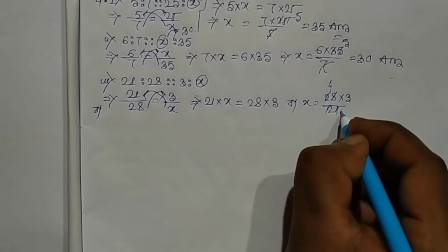 ⇒ 5/7 = 25/x ⇒ 5×x = 7×25
⇒ x = 7×25/5 = 35 Ans
ii⇒ 6:7::x:35
⇒ 6/7 = x/35 ⇒ 7×x = 6×35 ⇒ x = 6×35/7 = 30 Ans
iii⇒ 21:28::3:x
⇒ 21/28 = 3/x ⇒ 21×x = 28×3 या x = 28×3/21
या